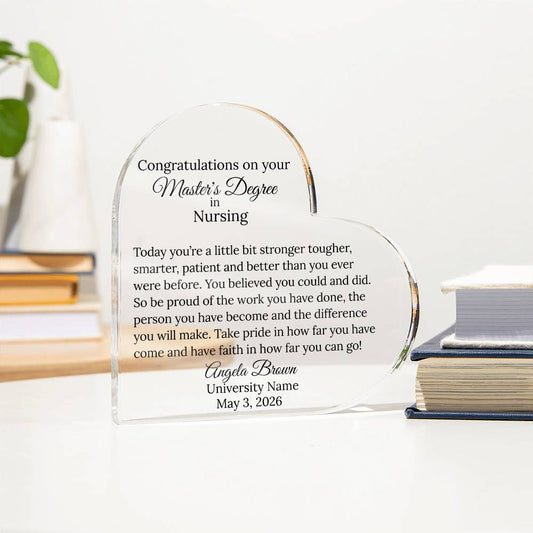 Congratulations on your
Master's Degree
in
Nursing
Today you're a little bit stronger tougher,
smarter, patient and better than you ever
were before. You believed you could and did.
So be proud of the work you have done, the
person you have become and the difference
you will make. Take pride in how far you have
come and have faith in how far you can go!
Angela Brown
University Name
May 3, 2026